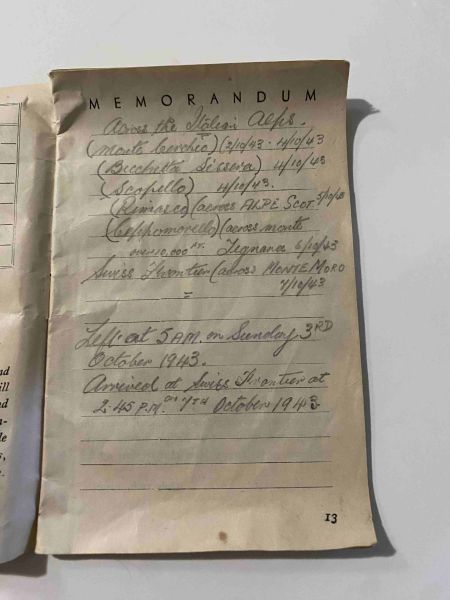 MEMORANDUM
Across the Italian Alps.
(Monte Cerchio) (2/10/43 - 4/10/43
(Bocchetta Sessera) 4/10/43
(Scopello) 4/10/43.
(Rimasco) (across ALPE SCOT 5/10/43
(Ceppomorello) (across monte
over 10,000 FT. Tegnana 6/10/43
Swiss Frontier (across MONTE MORO
7/10/43
=
Left at 5 AM. on Sunday 3RD
October 1943.
Arrived at Swiss Frontier at
2.45 P.M. on 7TH October 1943
13
nd
ill
nd
n-
le
s,
e.